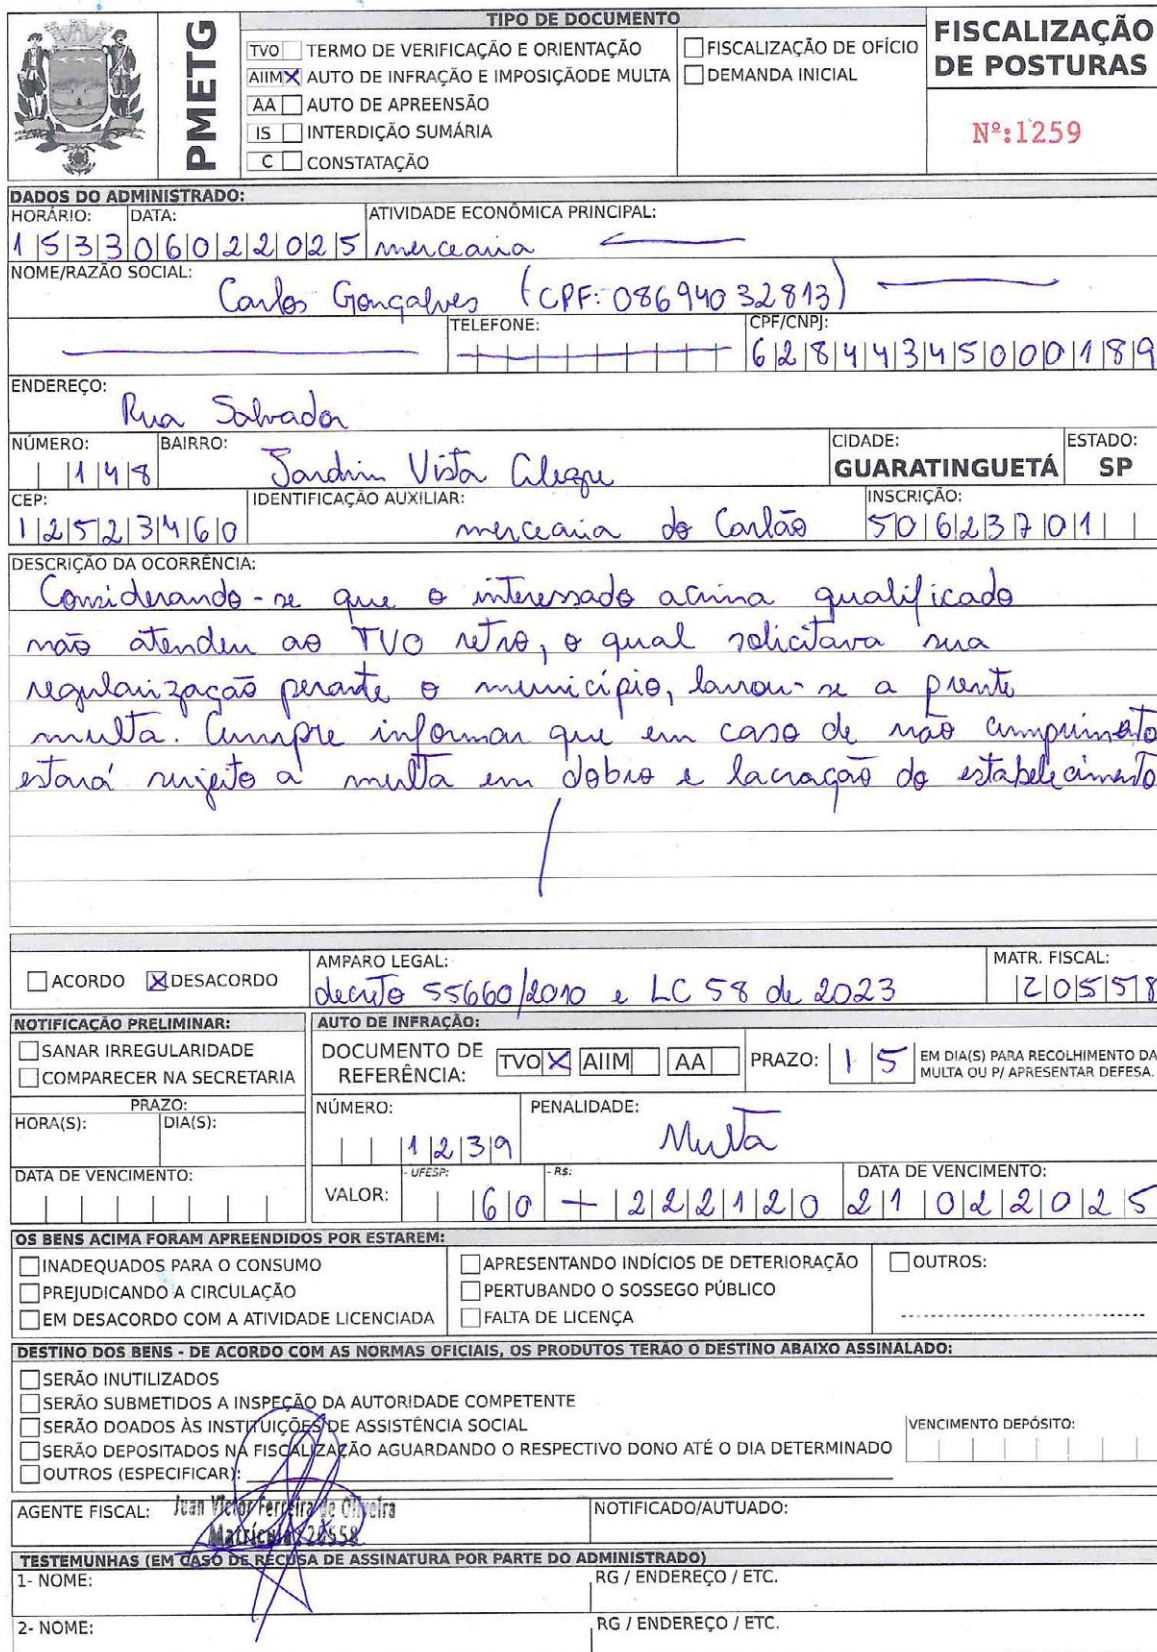 PMETG
TIPO DE DOCUMENTO
TVO TERMO DE VERIFICAÇÃO E ORIENTAÇÃO
AIIM X AUTO DE INFRAÇÃO E IMPOSIÇÃODE MULTA
AA AUTO DE APREENSÃO
IS INTERDIÇÃO SUMÁRIA
C CONSTATAÇÃO
FISCALIZAÇÃO DE OFÍCIO
DEMANDA INICIAL
FISCALIZAÇÃO
DE POSTURAS
Nº:1259
DADOS DO ADMINISTRADO:
HORÁRIO: DATA: ATIVIDADE ECONÔMICA PRINCIPAL:
1533 06022025 mercearia
NOME/RAZÃO SOCIAL:
Carlos Gonçalves (CPF: 08694032813)
TELEFONE: CPF/CNPJ:
62844345000189
ENDEREÇO:
Rua Salvador
NÚMERO: BAIRRO: CIDADE: ESTADO:
148 Jardim Vista Alegre GUARATINGUETÁ SP
CEP: IDENTIFICAÇÃO AUXILIAR: INSCRIÇÃO:
12523460 mercearia do Carlão 50623701
DESCRIÇÃO DA OCORRÊNCIA:
Considerando-se que o interessado acima qualificado
não atendeu ao TVO retro, o qual solicitava sua
regularização perante o município, lavrou-se a prente
multa. Cumpre informar que em caso de não cumprimento
estará sujeito a multa em dobro e lacração do estabelecimento
ACORDO X DESACORDO
AMPARO LEGAL:
decreto 55660/2010 e LC 58 de 2023
MATR. FISCAL:
20558
NOTIFICAÇÃO PRELIMINAR:
SANAR IRREGULARIDADE
COMPARECER NA SECRETARIA
PRAZO:
HORA(S): DIA(S):
DATA DE VENCIMENTO:
AUTO DE INFRAÇÃO:
DOCUMENTO DE REFERÊNCIA: TVO X AIIM AA
PRAZO: 15 EM DIA(S) PARA RECOLHIMENTO DA
MULTA OU P/ APRESENTAR DEFESA.
NÚMERO: PENALIDADE:
1239 Multa
VALOR: - UFESP: - R$: DATA DE VENCIMENTO:
60 222120 21022025
OS BENS ACIMA FORAM APREENDIDOS POR ESTAREM:
INADEQUADOS PARA O CONSUMO
PREJUDICANDO A CIRCULAÇÃO
EM DESACORDO COM A ATIVIDADE LICENCIADA
APRESENTANDO INDÍCIOS DE DETERIORAÇÃO
PERTUBANDO O SOSSEGO PÚBLICO
FALTA DE LICENÇA
OUTROS:
DESTINO DOS BENS - DE ACORDO COM AS NORMAS OFICIAIS, OS PRODUTOS TERÃO O DESTINO ABAIXO ASSINALADO:
SERÃO INUTILIZADOS
SERÃO SUBMETIDOS A INSPEÇÃO DA AUTORIDADE COMPETENTE
SERÃO DOADOS ÀS INSTITUIÇÕES DE ASSISTÊNCIA SOCIAL
SERÃO DEPOSITADOS NA FISCALIZAÇÃO AGUARDANDO O RESPECTIVO DONO ATÉ O DIA DETERMINADO
OUTROS (ESPECIFICAR):
VENCIMENTO DEPÓSITO:
AGENTE FISCAL: Juan Victor Ferreira de Oliveira
Matrícula 20558
NOTIFICADO/AUTUADO:
TESTEMUNHAS (EM CASO DE RECUSA DE ASSINATURA POR PARTE DO ADMINISTRADO)
1- NOME: RG / ENDEREÇO / ETC.
2- NOME: RG / ENDEREÇO / ETC.